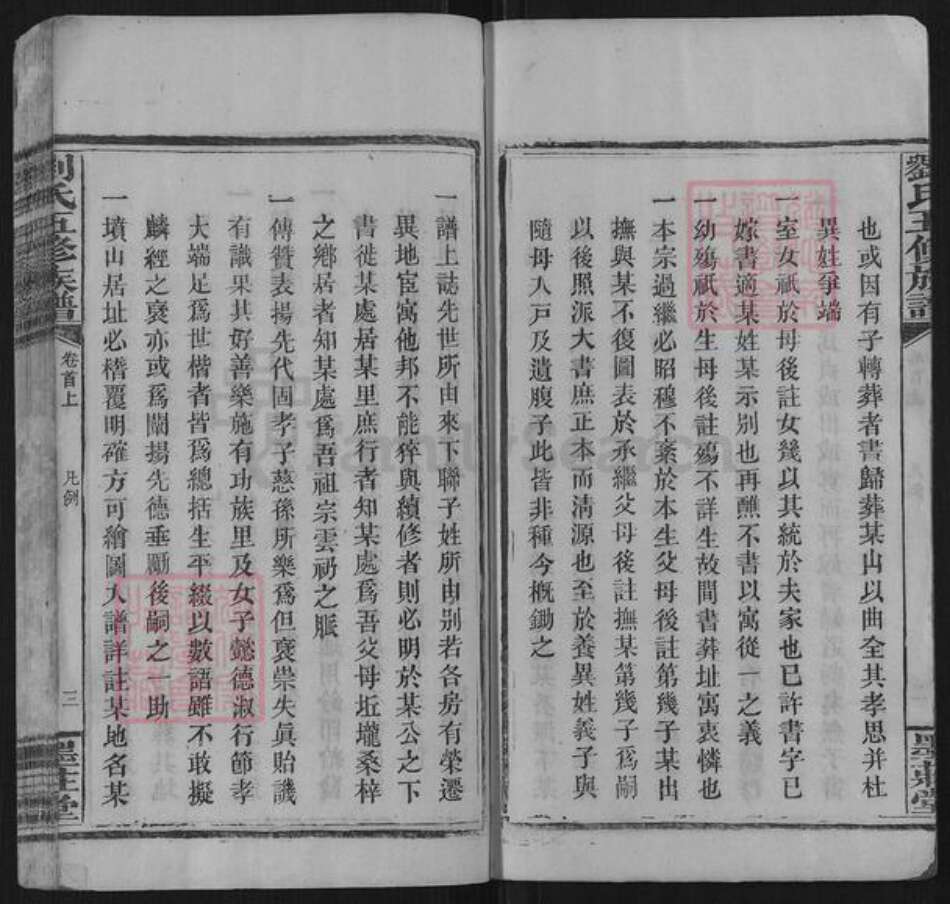 劉氏五修族譜
墨莊堂
也或因有子轉葬者書歸葬某山以曲全其孝思并杜
異姓爭端
一室女祇於母後註女幾以其統於夫家也已許書字已
嫁書適某姓某示别也再醮不書以寓從一之義
一幼殤祇於生母後註殤不詳生故間書葬址寓哀憐也
一本宗過繼必昭穆不紊於本生父母後註第幾子某出
撫與某不復圖表於承繼父母後註撫某第幾子爲嗣
以後照派大書庶正本而清源也至於養異姓義子與
隨母入戸及遺腹子此皆非種今概鋤之
一譜上誌先世所由來下聯子姓所由别若各房有榮遷
異地宦寓他邦不能猝與續修者則必明於某公之下
書徙某處居某里庶行者知某處爲吾父母坵壠桑梓
之鄉居者知某處爲吾祖宗雲礽之脈
一傳贊表揚先代固孝子慈孫所樂爲但褒崇失眞貽譏
有識果其好善樂施有功族里及女子懿德淑行節孝
大端足爲世楷者皆爲總括生平綴以數語雖不敢擬
麟經之褒亦或爲闡揚先德垂勵後嗣之一助
一墳山居址必楷覆明確方可繪圖入譜詳註某地名某
劉氏五修族譜
卷首上
凡例
三
墨莊堂